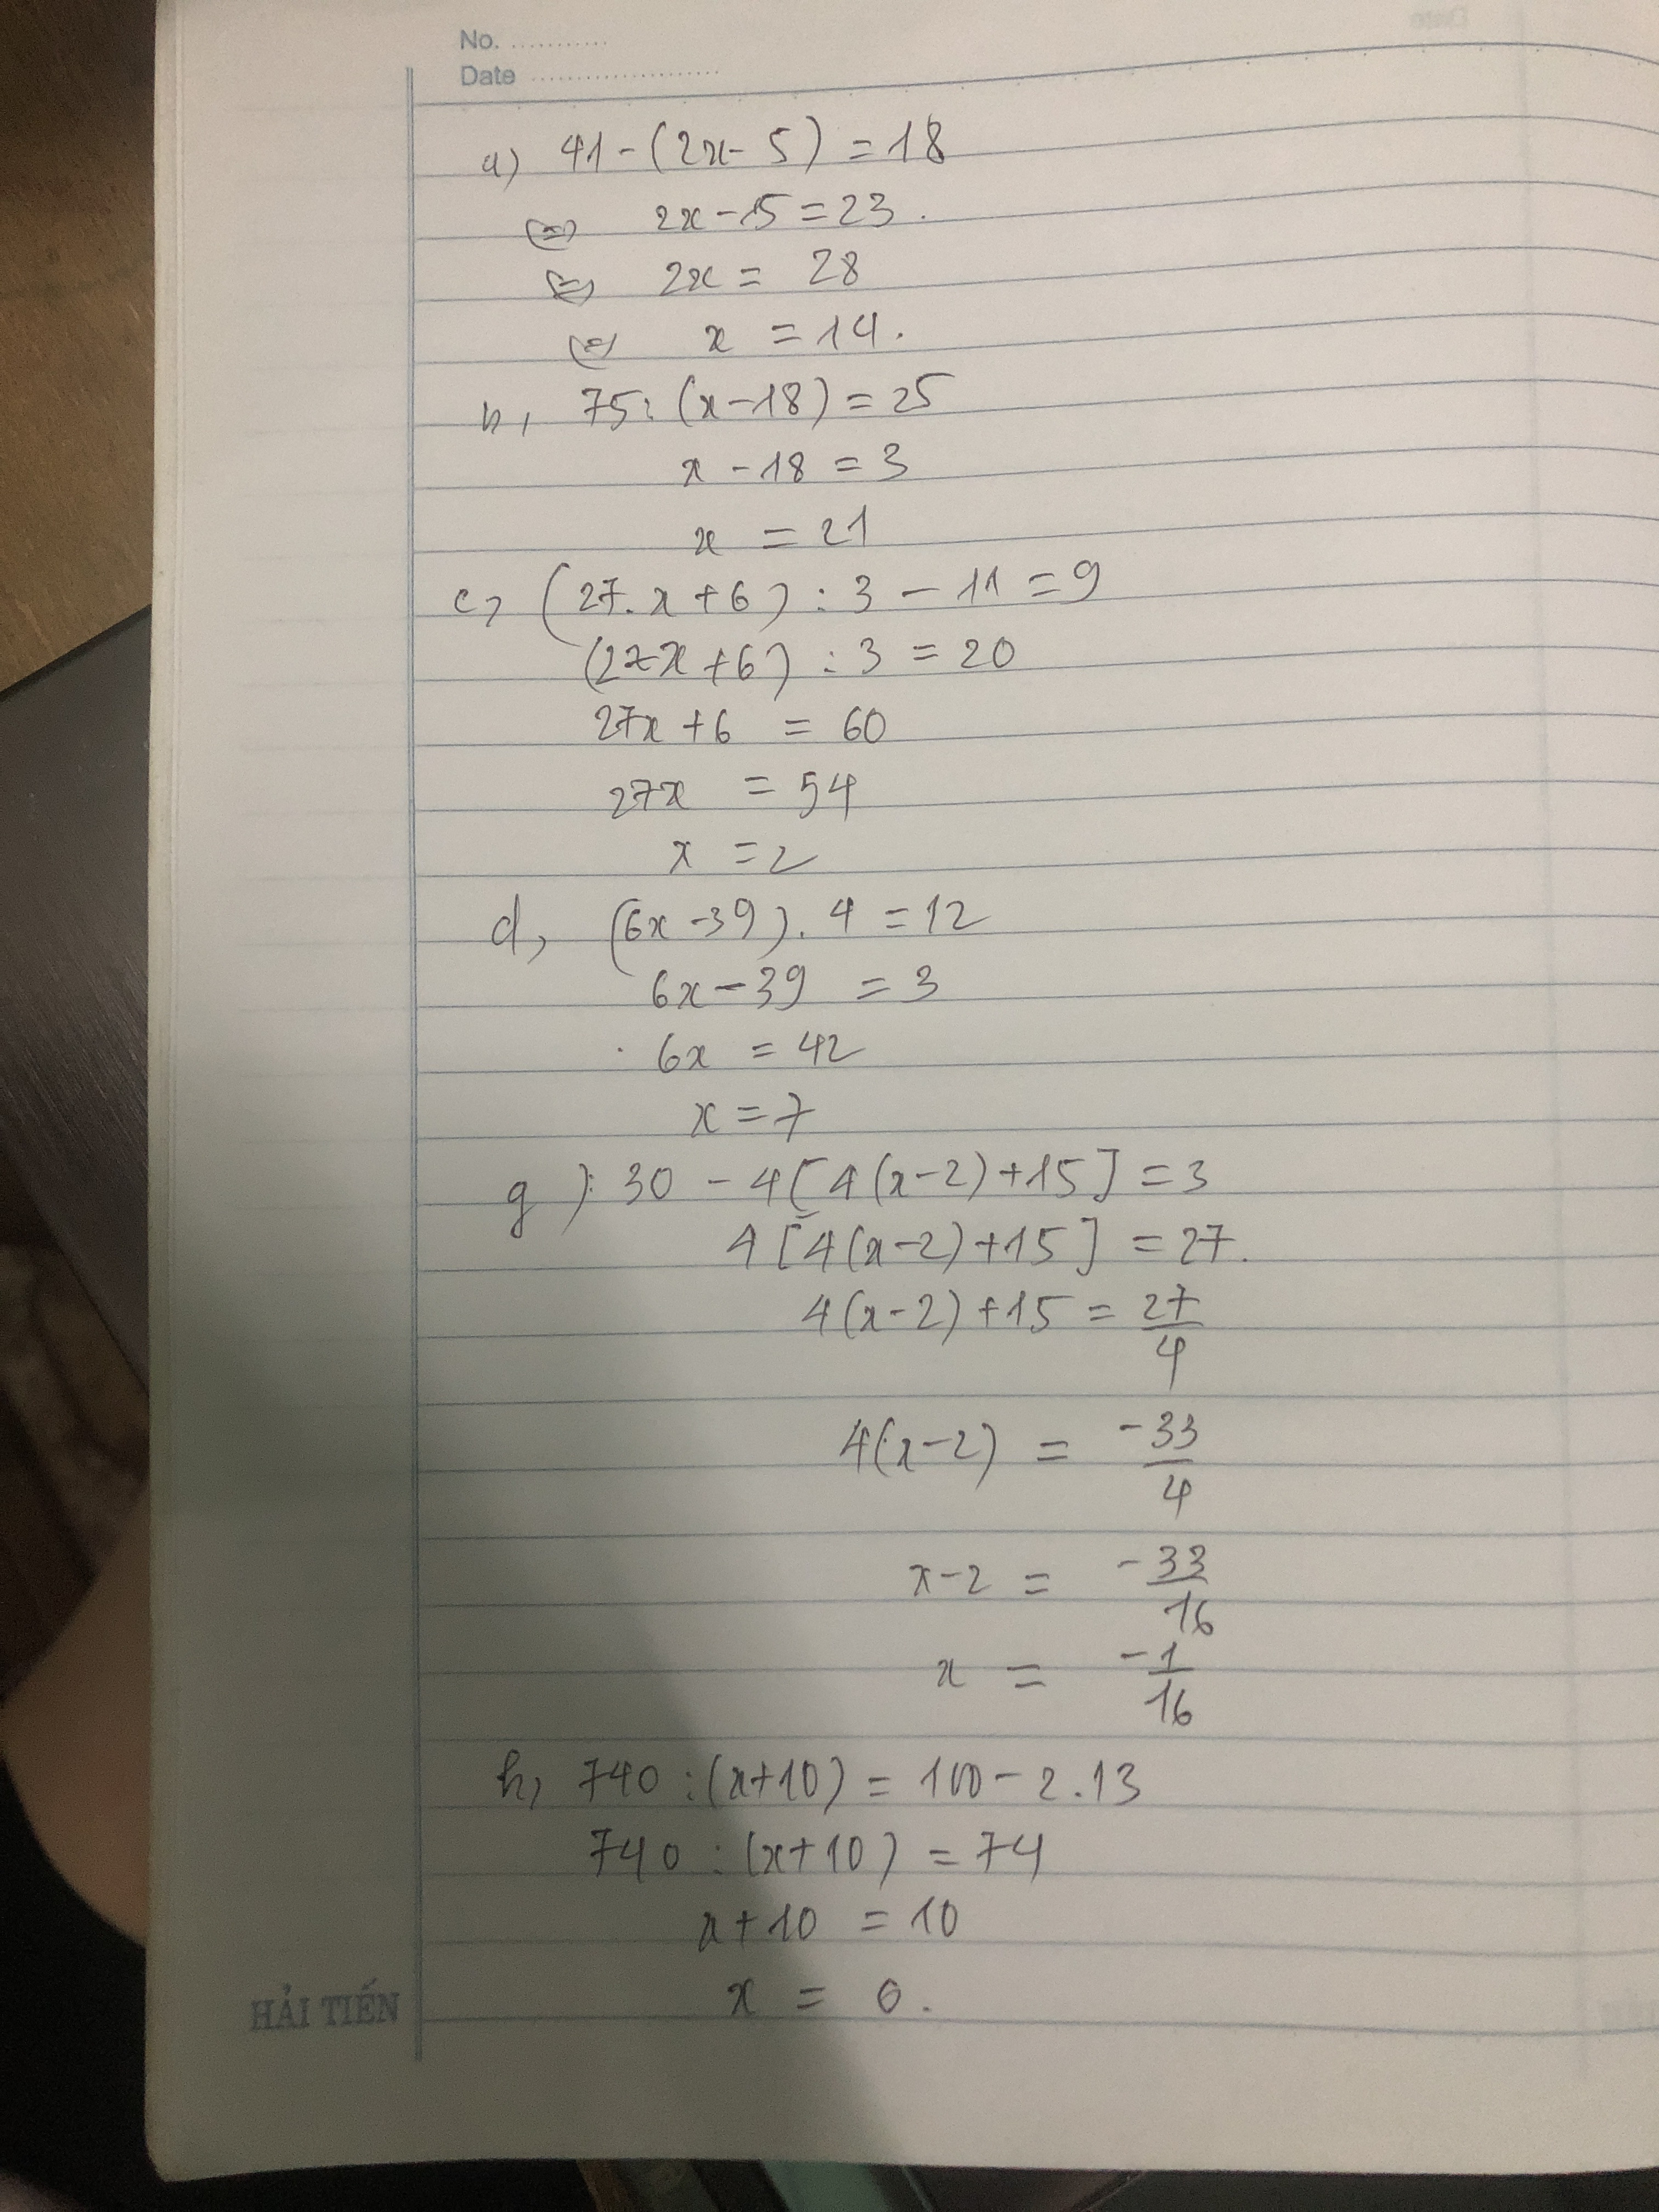 No. ...........
Date .....................
a) 41 - (2x - 5) = 18
(=) 2x - 15 = 23.
(=) 2x = 28
(=) x = 14.
b, 75 : (x - 18) = 25
x - 18 = 3
x = 21
c, (27. x + 6) : 3 - 11 = 9
(27x + 6) : 3 = 20
27x + 6 = 60
27x = 54
x = 2
d, (6x - 39). 4 = 12
6x - 39 = 3
6x = 42
x = 7
g ) 30 - 4[4(x-2) + 15] = 3
4[4(x-2) + 15] = 27.
4(x-2) + 15 = 27/4
4(x-2) = -33/4
x-2 = -33/16
x = -1/16
h, 740 : (x+10) = 100 - 2.13
740 : (x+10) = 74
x + 10 = 10
x = 0.
HẢI TIẾN